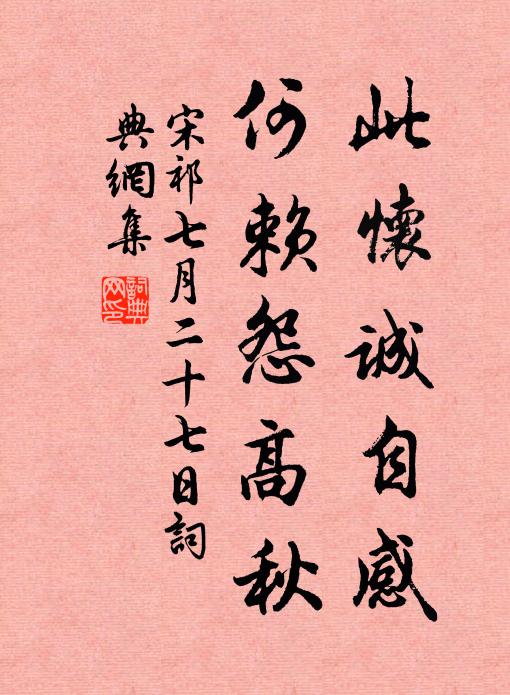 此懷誠自感
何賴怨高秋
宋祁七月二十七日詞
典網集
詞典
网印